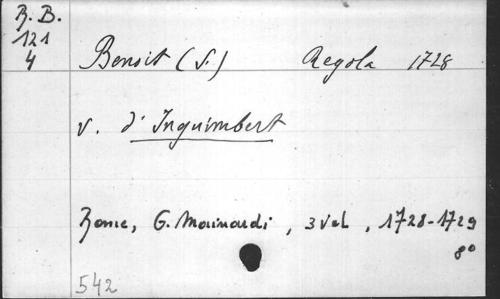 R. B.
121
4
Benoit (S.) Regola 1728
v. d'Inguimbert
Rome, G. Mainardi, 3 vol, 1728-1729
8°
542